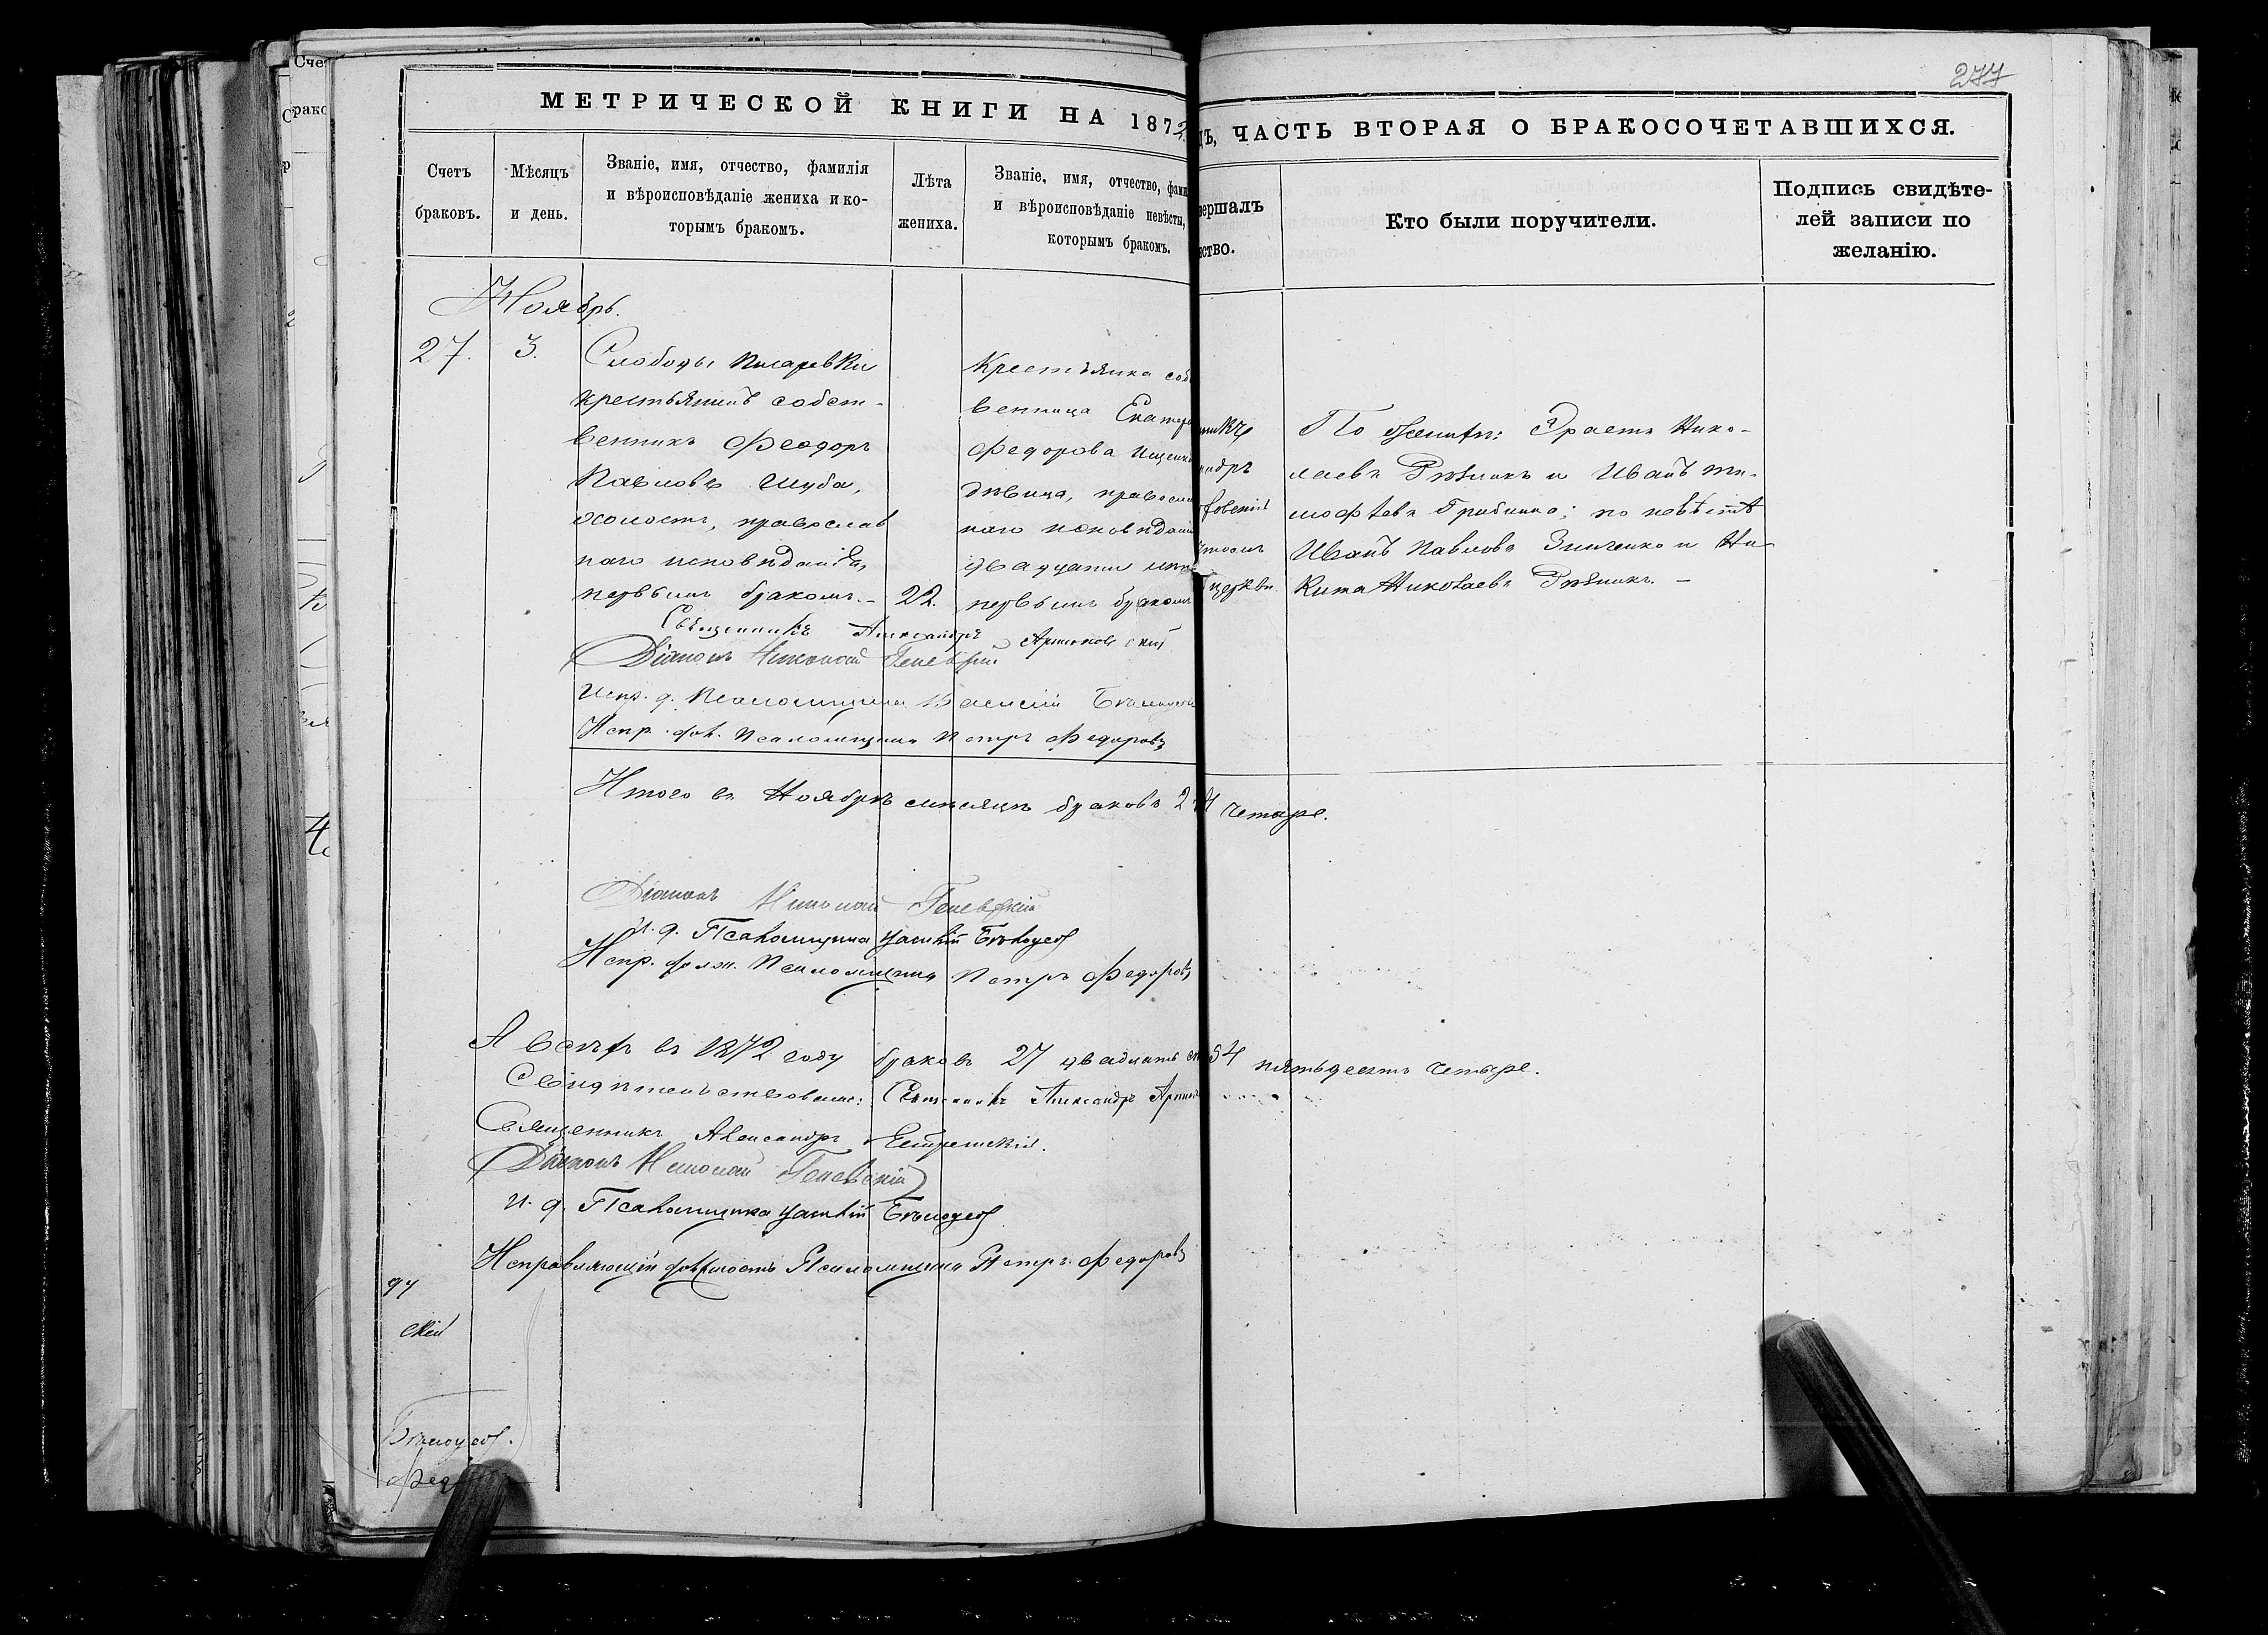 277
МЕТРИЧЕСКОЙ КНИГИ НА 1872
Ъ, ЧАСТЬ ВТОРАЯ О БРАКОСОЧЕТАВШИХСЯ.
Счетъ
браковъ.
Мѣсяцъ
и день.
Званіе, имя, отчество, фамилія
и вѣроисповѣданіе жениха и ко-
торымъ бракомъ.
Лѣта
жениха.
Званіе, имя, отчество, фами
и вѣроисповѣданіе невѣсты,
которымъ бракомъ.
вершалъ
ство.
Кто были поручители.
Подпись свидѣте-
лей записи по
желанію.
Ноябрь.
27.
3.
Слободы Писаревки
крестьянинъ собст-
венникъ Феодоръ
Павловъ Шуба,
холостъ, православ
наго исповѣданія,
первымъ бракомъ. –
22.
Крестьянка соб
венница Екатер
Федорова Ищенко
дѣвица, правосла
наго исповѣдані
двадцати
первымъ бракомъ
церкви.
По женихѣ: Эрастъ Нико-
лаевъ Рѣзникъ и Иванъ Ти-
мофѣевъ Грибинко; по невѣстѣ
Иванъ Павловъ Зинченко и Ни-
кита Николаевъ Рѣзникъ. –
Священникъ Александръ
Діаконъ Николай Геневскій
Испр. д. Псаломщика Василій
Испр. дол. Псаломщика Петръ Федоровъ
Итого въ Ноябрѣ мѣсяцѣ браковъ 2 4 четыре.
Діаконъ Николай Геневскій
И. д. Псаломщика Бѣлоусов
Испр. долж. Псаломщика Петръ Федоровъ
А всѣхъ въ 1872 году браковъ 27 двадцать 54 пятьдесятъ четыре.
Свидѣтельствовали: Священникъ Александръ
Священникъ Александръ
Діаконъ Николай Геневскій
И. д. Псаломщика Бѣлоусов
Исправляющій должность Псаломщика Петръ Федоровъ
скій
Бѣлоусов.
Фед